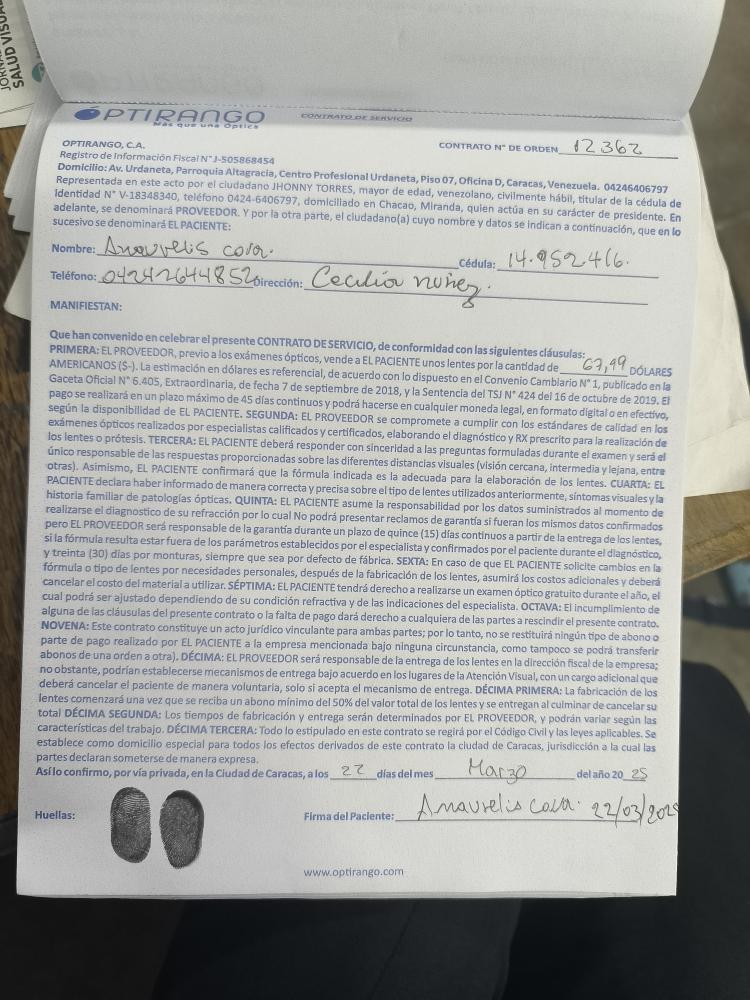 JORNA
SALUD VISUA
OPTIRANGO
Más que una Óptica
CONTRATO DE SERVICIO
OPTIRANGO, C.A.
CONTRATO N° DE ORDEN 12362
Registro de Información Fiscal N°J-505868454
Domicilio: Av. Urdaneta, Parroquia Altagracia, Centro Profesional Urdaneta, Piso 07, Oficina D, Caracas, Venezuela. 04246406797
Representada en este acto por el ciudadano JHONNY TORRES, mayor de edad, venezolano, civilmente hábil, titular de la cédula de
Identidad N° V-18348340, teléfono 0424-6406797, domiciliado en Chacao, Miranda, quien actúa en su carácter de presidente. En
adelante, se denominará PROVEEDOR. Y por la otra parte, el ciudadano(a) cuyo nombre y datos se indican a continuación, que en lo
sucesivo se denominará EL PACIENTE:
Nombre: Anaurelis cova. Cédula: 14.952.416.
Teléfono: 04242644852 Dirección: Cecilia nuñez.
MANIFIESTAN:
Que han convenido en celebrar el presente CONTRATO DE SERVICIO, de conformidad con las siguientes cláusulas:
PRIMERA: EL PROVEEDOR, previo a los exámenes ópticos, vende a EL PACIENTE unos lentes por la cantidad de 67,49 DÓLARES
AMERICANOS ($-). La estimación en dólares es referencial, de acuerdo con lo dispuesto en el Convenio Cambiario N° 1, publicado en la
Gaceta Oficial N° 6.405, Extraordinaria, de fecha 7 de septiembre de 2018, y la Sentencia del TSJ N° 424 del 16 de octubre de 2019. El
pago se realizará en un plazo máximo de 45 días continuos y podrá hacerse en cualquier moneda legal, en formato digital o en efectivo,
según la disponibilidad de EL PACIENTE. SEGUNDA: EL PROVEEDOR se compromete a cumplir con los estándares de calidad en los
exámenes ópticos realizados por especialistas calificados y certificados, elaborando el diagnóstico y RX prescrito para la realización de
los lentes o prótesis. TERCERA: EL PACIENTE deberá responder con sinceridad a las preguntas formuladas durante el examen y será el
único responsable de las respuestas proporcionadas sobre las diferentes distancias visuales (visión cercana, intermedia y lejana, entre
otras). Asimismo, EL PACIENTE confirmará que la fórmula indicada es la adecuada para la elaboración de los lentes. CUARTA: EL
PACIENTE declara haber informado de manera correcta y precisa sobre el tipo de lentes utilizados anteriormente, síntomas visuales y la
historia familiar de patologías ópticas. QUINTA: EL PACIENTE asume la responsabilidad por los datos suministrados al momento de
realizarse el diagnostico de su refracción por lo cual No podrá presentar reclamos de garantía si fueran los mismos datos confirmados
pero EL PROVEEDOR será responsable de la garantía durante un plazo de quince (15) días continuos a partir de la entrega de los lentes,
si la fórmula resulta estar fuera de los parámetros establecidos por el especialista y confirmados por el paciente durante el diagnóstico,
y treinta (30) días por monturas, siempre que sea por defecto de fábrica. SEXTA: En caso de que EL PACIENTE solicite cambios en la
fórmula o tipo de lentes por necesidades personales, después de la fabricación de los lentes, asumirá los costos adicionales y deberá
cancelar el costo del material a utilizar. SÉPTIMA: EL PACIENTE tendrá derecho a realizarse un examen óptico gratuito durante el año, el
cual podrá ser ajustado dependiendo de su condición refractiva y de las indicaciones del especialista. OCTAVA: El incumplimiento de
alguna de las cláusulas del presente contrato o la falta de pago dará derecho a cualquiera de las partes a rescindir el presente contrato.
NOVENA: Este contrato constituye un acto jurídico vinculante para ambas partes; por lo tanto, no se restituirá ningún tipo de abono o
parte de pago realizado por EL PACIENTE a la empresa mencionada bajo ninguna circunstancia, como tampoco se podrá transferir
abonos de una orden a otra). DÉCIMA: EL PROVEEDOR será responsable de la entrega de los lentes en la dirección fiscal de la empresa;
no obstante, podrían establecerse mecanismos de entrega bajo acuerdo en los lugares de la Atención Visual, con un cargo adicional que
deberá cancelar el paciente de manera voluntaria, solo si acepta el mecanismo de entrega. DÉCIMA PRIMERA: La fabricación de los
lentes comenzará una vez que se reciba un abono mínimo del 50% del valor total de los lentes y se entregan al culminar de cancelar su
total DÉCIMA SEGUNDA: Los tiempos de fabricación y entrega serán determinados por EL PROVEEDOR, y podrán variar según las
características del trabajo. DÉCIMA TERCERA: Todo lo estipulado en este contrato se regirá por el Código Civil y las leyes aplicables. Se
establece como domicilio especial para todos los efectos derivados de este contrato la ciudad de Caracas, jurisdicción a la cual las
partes declaran someterse de manera expresa.
Así lo confirmo, por vía privada, en la Ciudad de Caracas, a los 22 días del mes Marzo del año 20 25
Huellas:
Firma del Paciente: Anaurelis cova. 22/03/2025
www.optirango.com